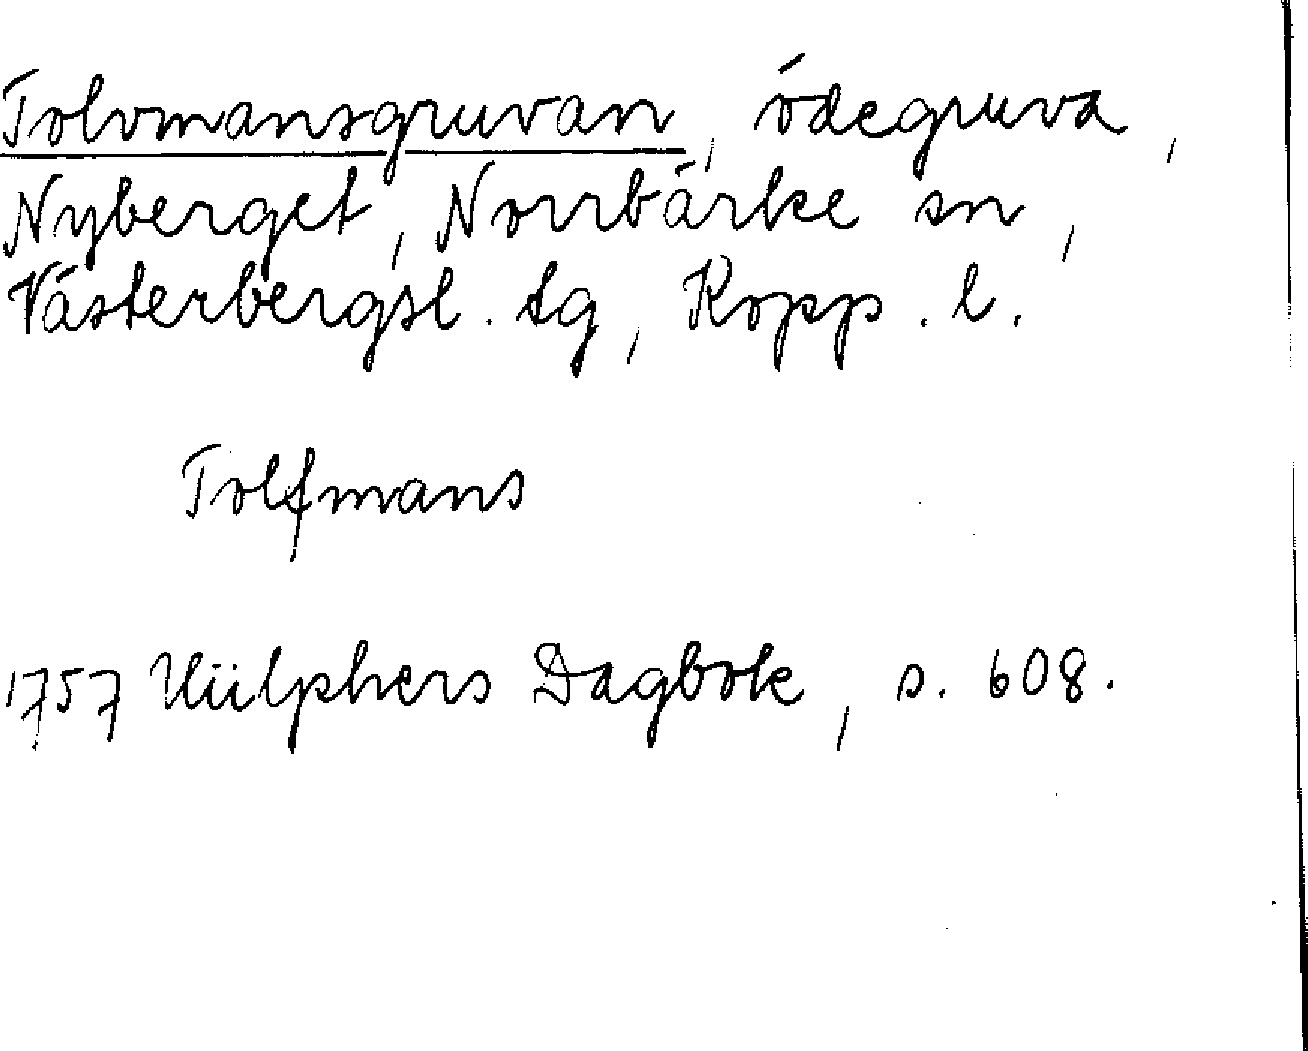 Tolvmansgruvan, ödegruva,
Nyberget, Norrbärke sn,
Västerbergsl. tg, Kopp. l.
Tolfmans
1757 Hülphers Dagbok, s. 608.